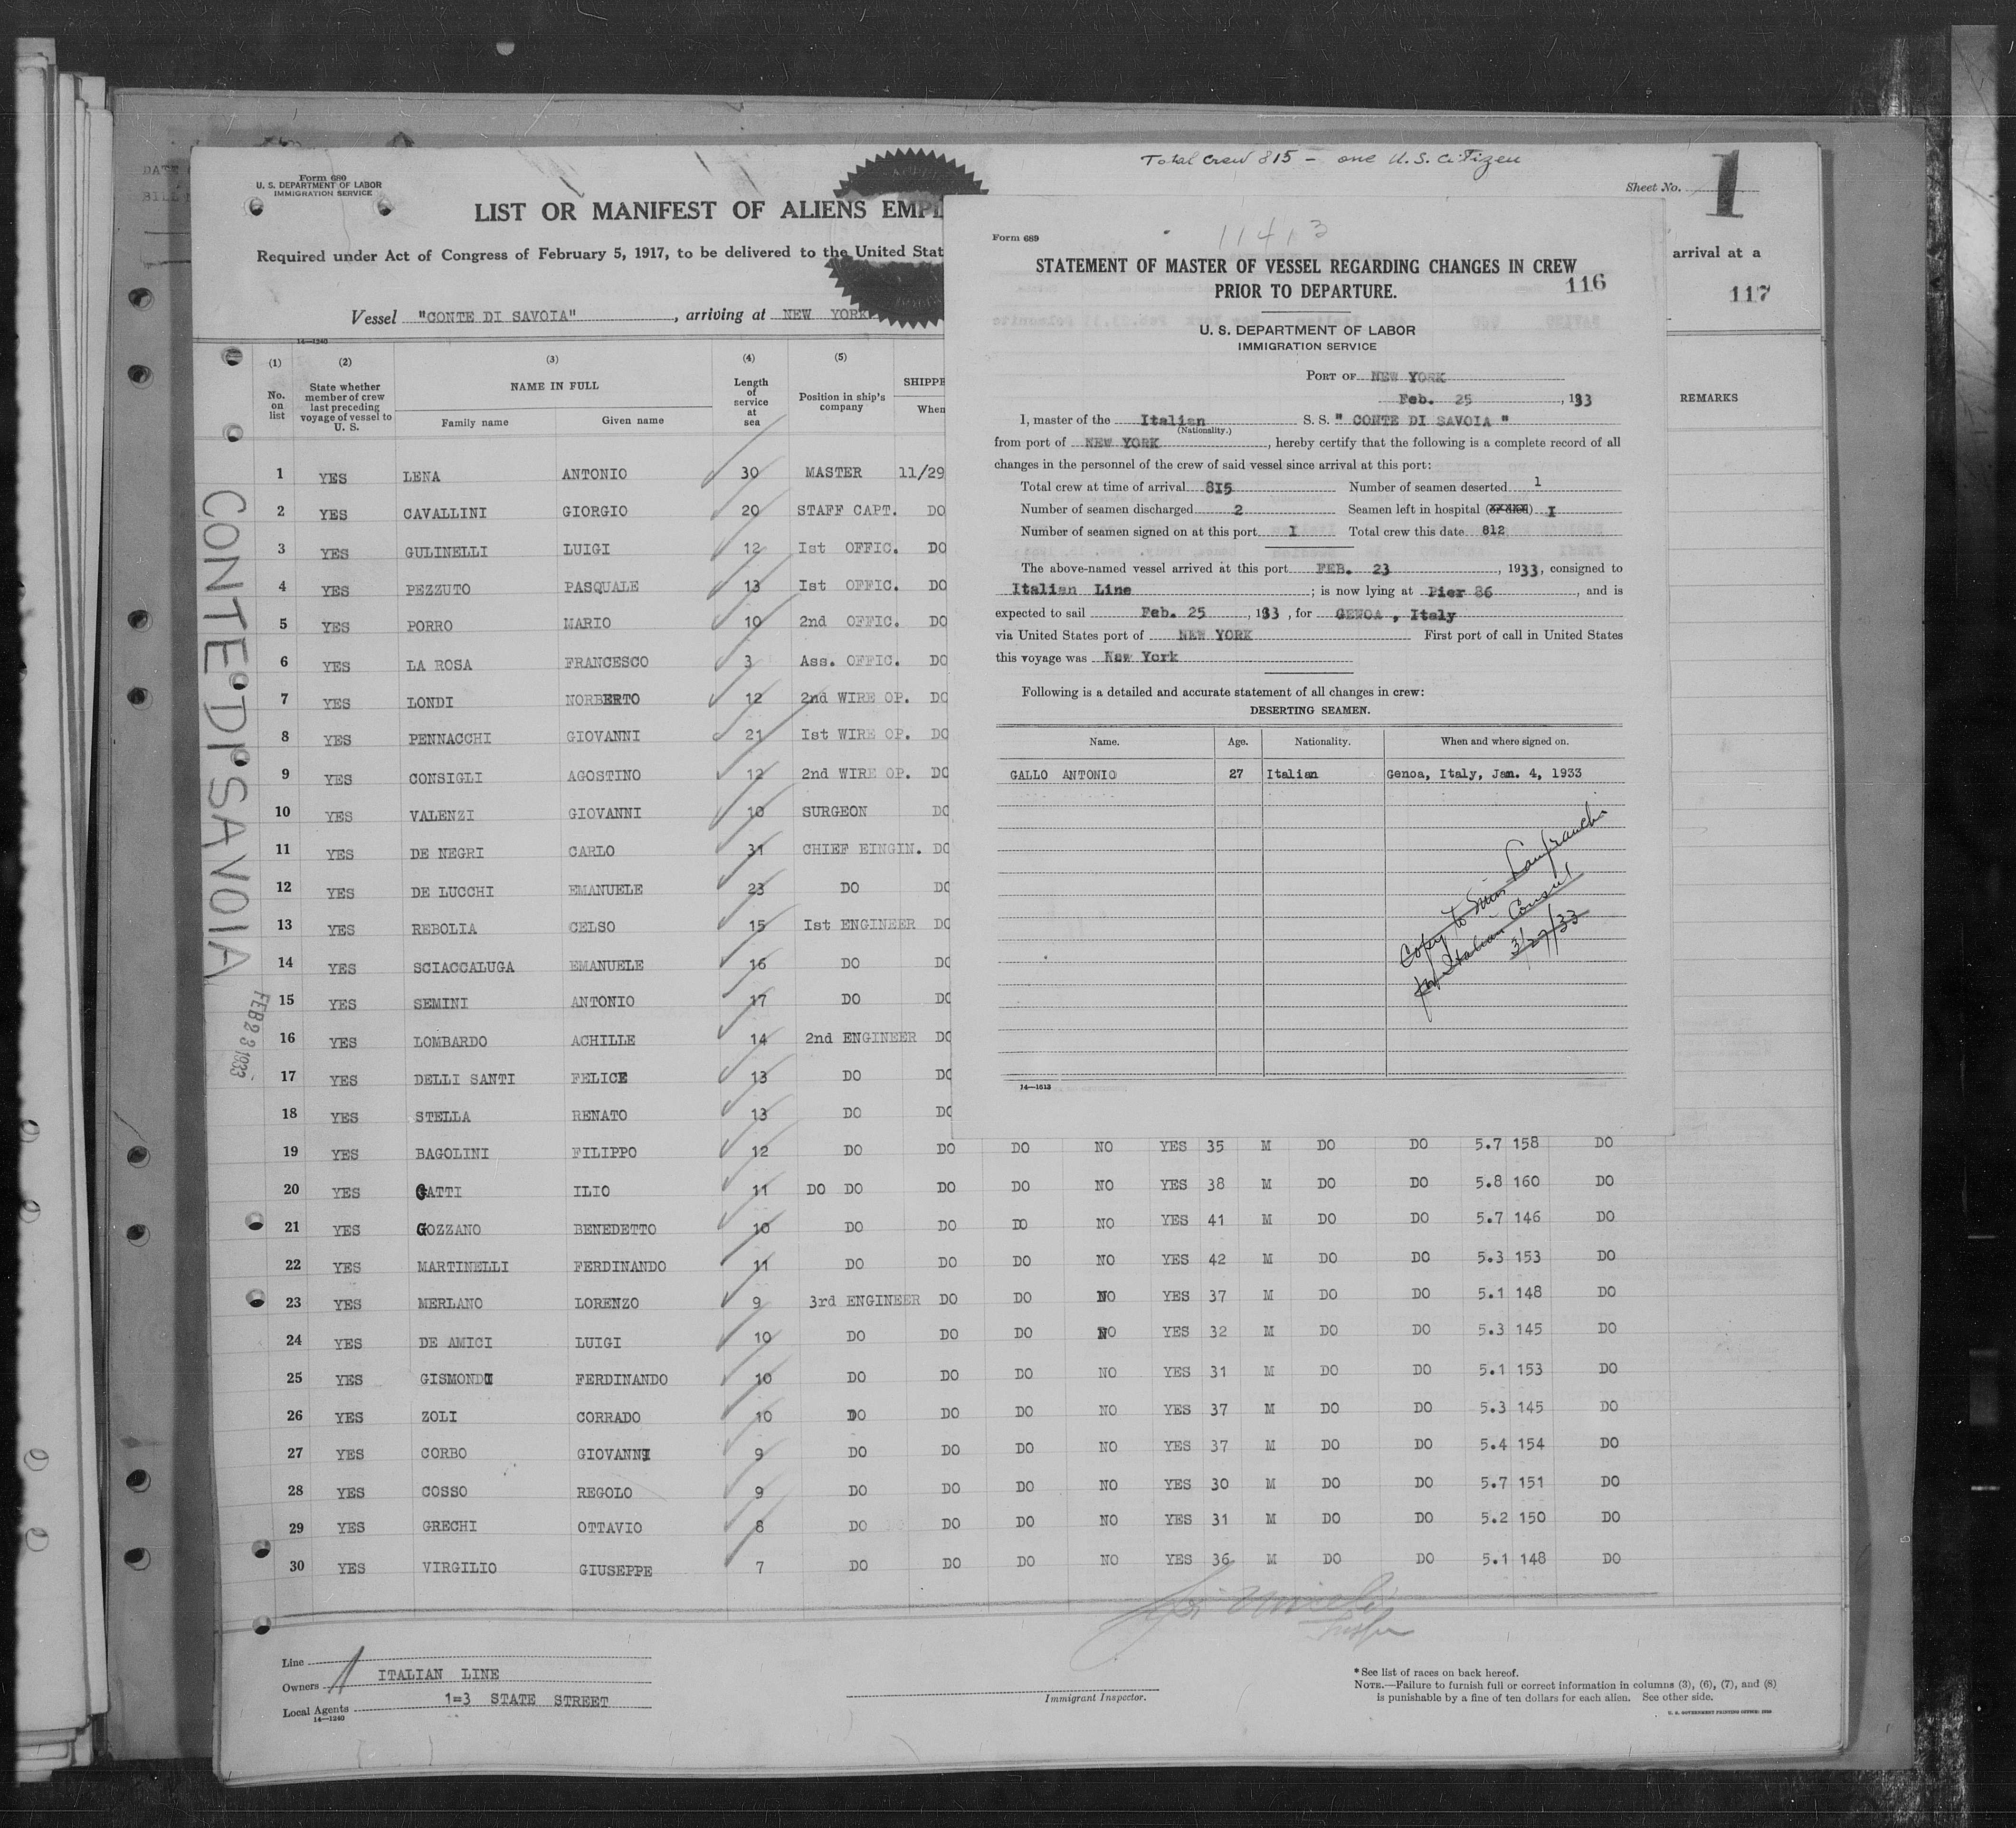 Total Crew 815 – one U.S. Citizen
Form 680
U. S. DEPARTMENT OF LABOR
IMMIGRATION SERVICE
Sheet No. 1
LIST OR MANIFEST OF ALIENS EMPL
Required under Act of Congress of February 5, 1917, to be delivered to the United Stat
arrival at a
117
Vessel "CONTE DI SAVOIA", arriving at NEW YORK
14—1240
(1) (2) (3) (4) (5)
No. on list
State whether member of crew last preceding voyage of vessel to U. S.
NAME IN FULL
Family name Given name
Length of service at sea
Position in ship's company
SHIPPE
When
REMARKS
1 YES LENA ANTONIO 30 MASTER 11/29
2 YES CAVALLINI GIORGIO 20 STAFF CAPT. DO
3 YES GULINELLI LUIGI 12 Ist OFFIC. DO
4 YES PEZZUTO PASQUALE 13 Ist OFFIC. DO
5 YES PORRO MARIO 10 2nd OFFIC. DO
6 YES LA ROSA FRANCESCO 3 Ass. OFFIC. DO
7 YES LONDI NORBERTO 12 2nd WIRE OP. DO
8 YES PENNACCHI GIOVANNI 21 Ist WIRE OP. DO
9 YES CONSIGLI AGOSTINO 12 2nd WIRE OP. DO
10 YES VALENZI GIOVANNI 10 SURGEON DO
11 YES DE NEGRI CARLO 31 CHIEF EINGIN. DO
12 YES DE LUCCHI EMANUELE 23 DO DO
13 YES REBOLIA CELSO 15 Ist ENGINEER DO
14 YES SCIACCALUGA EMANUELE 16 DO DO
15 YES SEMINI ANTONIO 17 DO DO
16 YES LOMBARDO ACHILLE 14 2nd ENGINEER DO
17 YES DELLI SANTI FELICE 13 DO DO
18 YES STELLA RENATO 13 DO DO
19 YES BAGOLINI FILIPPO 12 DO DO DO NO YES 35 M DO DO 5.7 158 DO
20 YES GATTI ILIO 11 DO DO DO DO NO YES 38 M DO DO 5.8 160 DO
21 YES GOZZANO BENEDETTO 10 DO DO DO NO YES 41 M DO DO 5.7 146 DO
22 YES MARTINELLI FERDINANDO 11 DO DO DO NO YES 42 M DO DO 5.3 153 DO
23 YES MERLANO LORENZO 9 3rd ENGINEER DO DO NO YES 37 M DO DO 5.1 148 DO
24 YES DE AMICI LUIGI 10 DO DO DO NO YES 32 M DO DO 5.3 145 DO
25 YES GISMONDI FERDINANDO 10 DO DO DO NO YES 31 M DO DO 5.1 153 DO
26 YES ZOLI CORRADO 10 DO DO DO NO YES 37 M DO DO 5.3 145 DO
27 YES CORBO GIOVANNI 9 DO DO DO NO YES 37 M DO DO 5.4 154 DO
28 YES COSSO REGOLO 9 DO DO DO NO YES 30 M DO DO 5.7 151 DO
29 YES GRECHI OTTAVIO 8 DO DO DO NO YES 31 M DO DO 5.2 150 DO
30 YES VIRGILIO GIUSEPPE 7 DO DO DO NO YES 36 M DO DO 5.1 148 DO
CONTE DI SAVOIA
FEB 23 1933
Line
Owners ITALIAN LINE
Local Agents 1=3 STATE STREET
14—1240
Immigrant Inspector.
*See list of races on back hereof.
NOTE.—Failure to furnish full or correct information in columns (3), (6), (7), and (8)
is punishable by a fine of ten dollars for each alien. See other side.
U. S. GOVERNMENT PRINTING OFFICE:
11413
Form 689
STATEMENT OF MASTER OF VESSEL REGARDING CHANGES IN CREW
PRIOR TO DEPARTURE.
116
U. S. DEPARTMENT OF LABOR
IMMIGRATION SERVICE
PORT OF NEW YORK
Feb. 25, 1933
I, master of the Italian S. S. " CONTE DI SAVOIA "
(Nationality.)
from port of NEW YORK, hereby certify that the following is a complete record of all
changes in the personnel of the crew of said vessel since arrival at this port:
Total crew at time of arrival 815 Number of seamen deserted 1
Number of seamen discharged 2 Seamen left in hospital I
Number of seamen signed on at this port 1 Total crew this date 812
The above-named vessel arrived at this port FEB. 23, 1933, consigned to
Italian Line; is now lying at Pier 86, and is
expected to sail Feb. 25, 193 3, for GENOA , Italy
via United States port of NEW YORK First port of call in United States
this voyage was New York
Following is a detailed and accurate statement of all changes in crew:
DESERTING SEAMEN.
Name. Age. Nationality. When and where signed on.
GALLO ANTONIO 27 Italian Genoa, Italy, Jan. 4, 1933
Copy to Miss Lanfranchi
for Italian Consul
3/27/33
14—1613